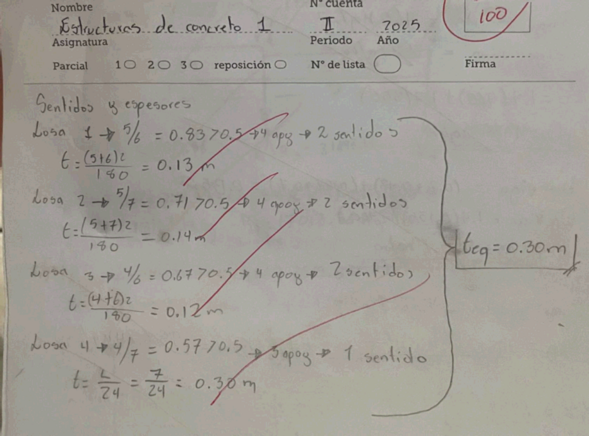 Nombre
N° cuenta
100
Estructuras de concreto 1 II 2025
Asignatura Periodo Año
Parcial 1○ 2○ 3○ reposición○ N° de lista Firma
Sentidos y espesores
Losa 1 → 5/6 = 0.83 > 0.5 → 4 apoy → 2 sentidos
t = (5+6)2/180 = 0.13 m
Losa 2 → 5/7 = 0.71 > 0.5 → 4 apoy → 2 sentidos
t = (5+7)2/180 = 0.14 m
teq = 0.30 m
Losa 3 → 4/6 = 0.67 > 0.5 → 4 apoy → 2 sentidos
t = (4+6)2/180 = 0.12 m
Losa 4 → 4/7 = 0.57 > 0.5 → 3 apoy → 1 sentido
t = L/24 = 7/24 = 0.30 m